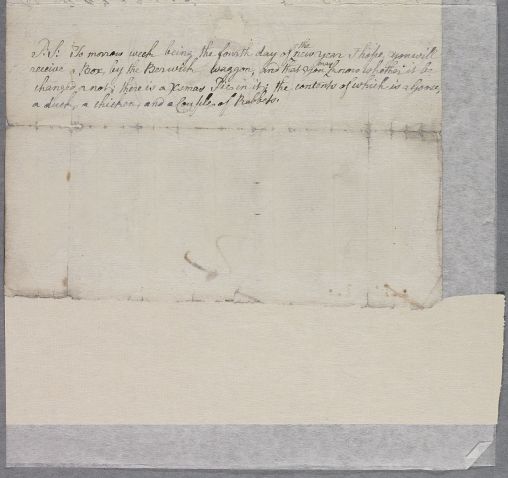 P.S: To morrow week being the fourth day of the new year I hope, you will
receive a Box, by the Berwick waggon, and that you may know whether it be
changed or not; there is a Xmas Pie in it; the contents of which is a Goose,
a duck, a chicken, and a Couple of Rabbets.